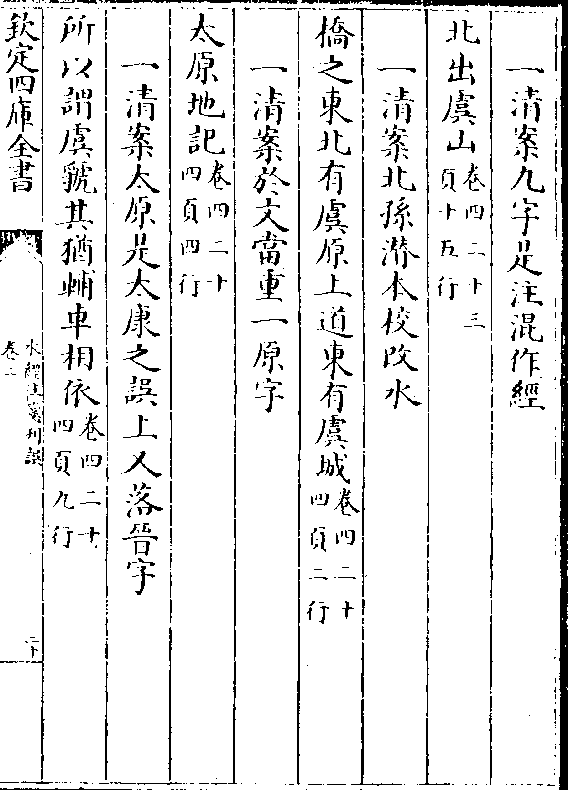 一清案九字是注混作經
北出虞山卷四二十三頁十五行
一清案北孫潛本校改水
橋之東北有虞原上道東有虞城卷四二十四頁二行
一清案於文當重一原字
太原地記卷四二十四頁四行
一清案太原是太康之誤上又落晉字
所以謂虞虢其猶輔車相依卷四二十四頁九行
欽定四庫全書
水經注箋刊誤
卷二
二十